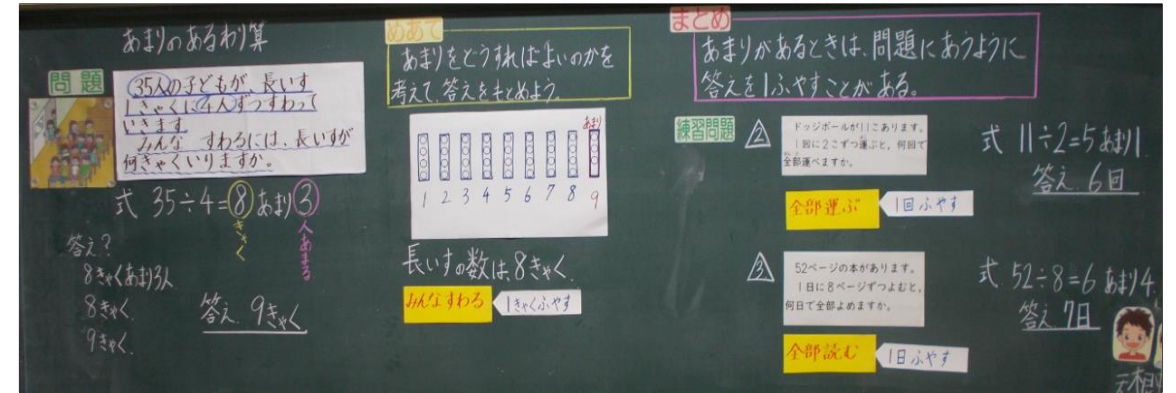 あまりのあるわり算
問題
35人の子どもが、長いす
1きゃくに4人ずつすわって
いきます
みんな すわるには、長いすが
何きゃくいりますか。
式 35÷4=8あまり3
きゃく
人あまる
答え?
8きゃくあまり3人
8きゃく
9きゃく
答え 9きゃく
めあて
あまりをどうすればよいのかを
考えて、答えをもとめよう。
あまり
1 2 3 4 5 6 7 8 9
長いすの数は8きゃく
みんなすわる 1きゃくふやす
まとめ
あまりがあるときは、問題にあうように
答えを1ふやすことがある。
練習問題
2
ドッジボールが11こあります。
1回に2こずつ運ぶと、何回で
全部運べますか。
式 11÷2=5あまり1.
答え 6回
全部運ぶ 1回ふやす
3
52ページの本があります。
1日に8ページずつよむと、
何日で全部よめますか。
式 52÷8=6あまり4.
答え 7日
全部読む 1日ふやす